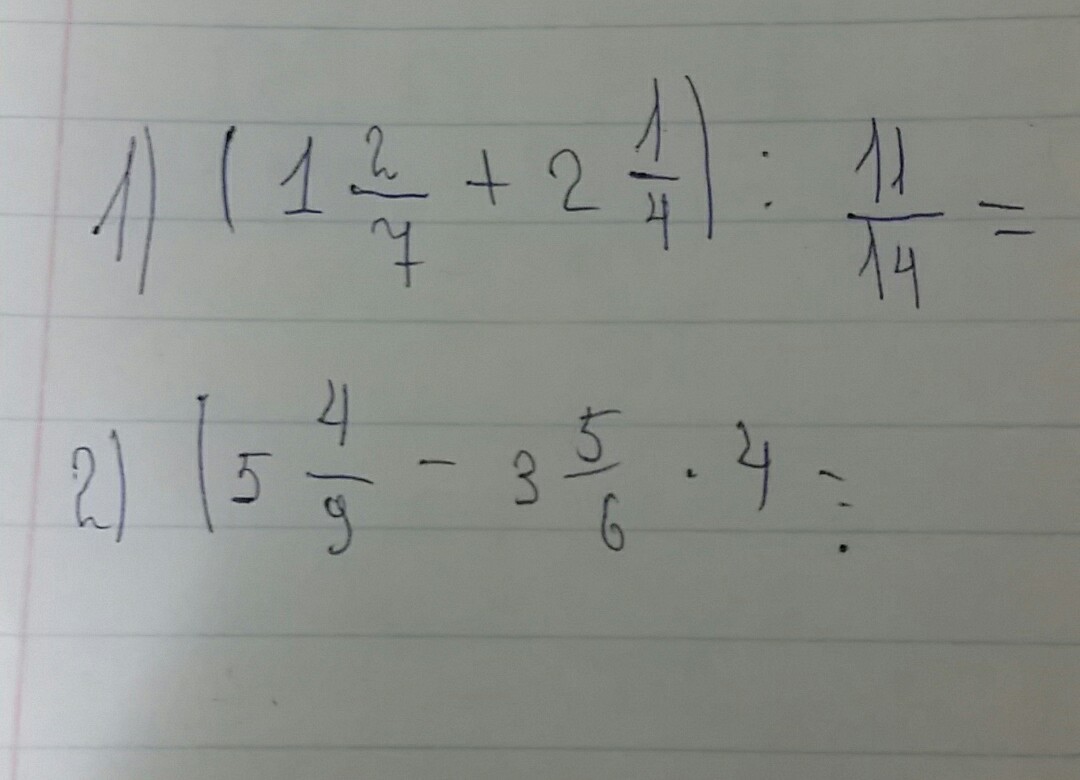 1) (1 2/7 + 2 1/4) : 11/14 =
2) (5 4/9 - 3 5/6 · 4 =